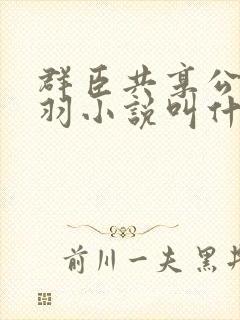 群臣共享公
羽小說叫什
前川一夫 黑